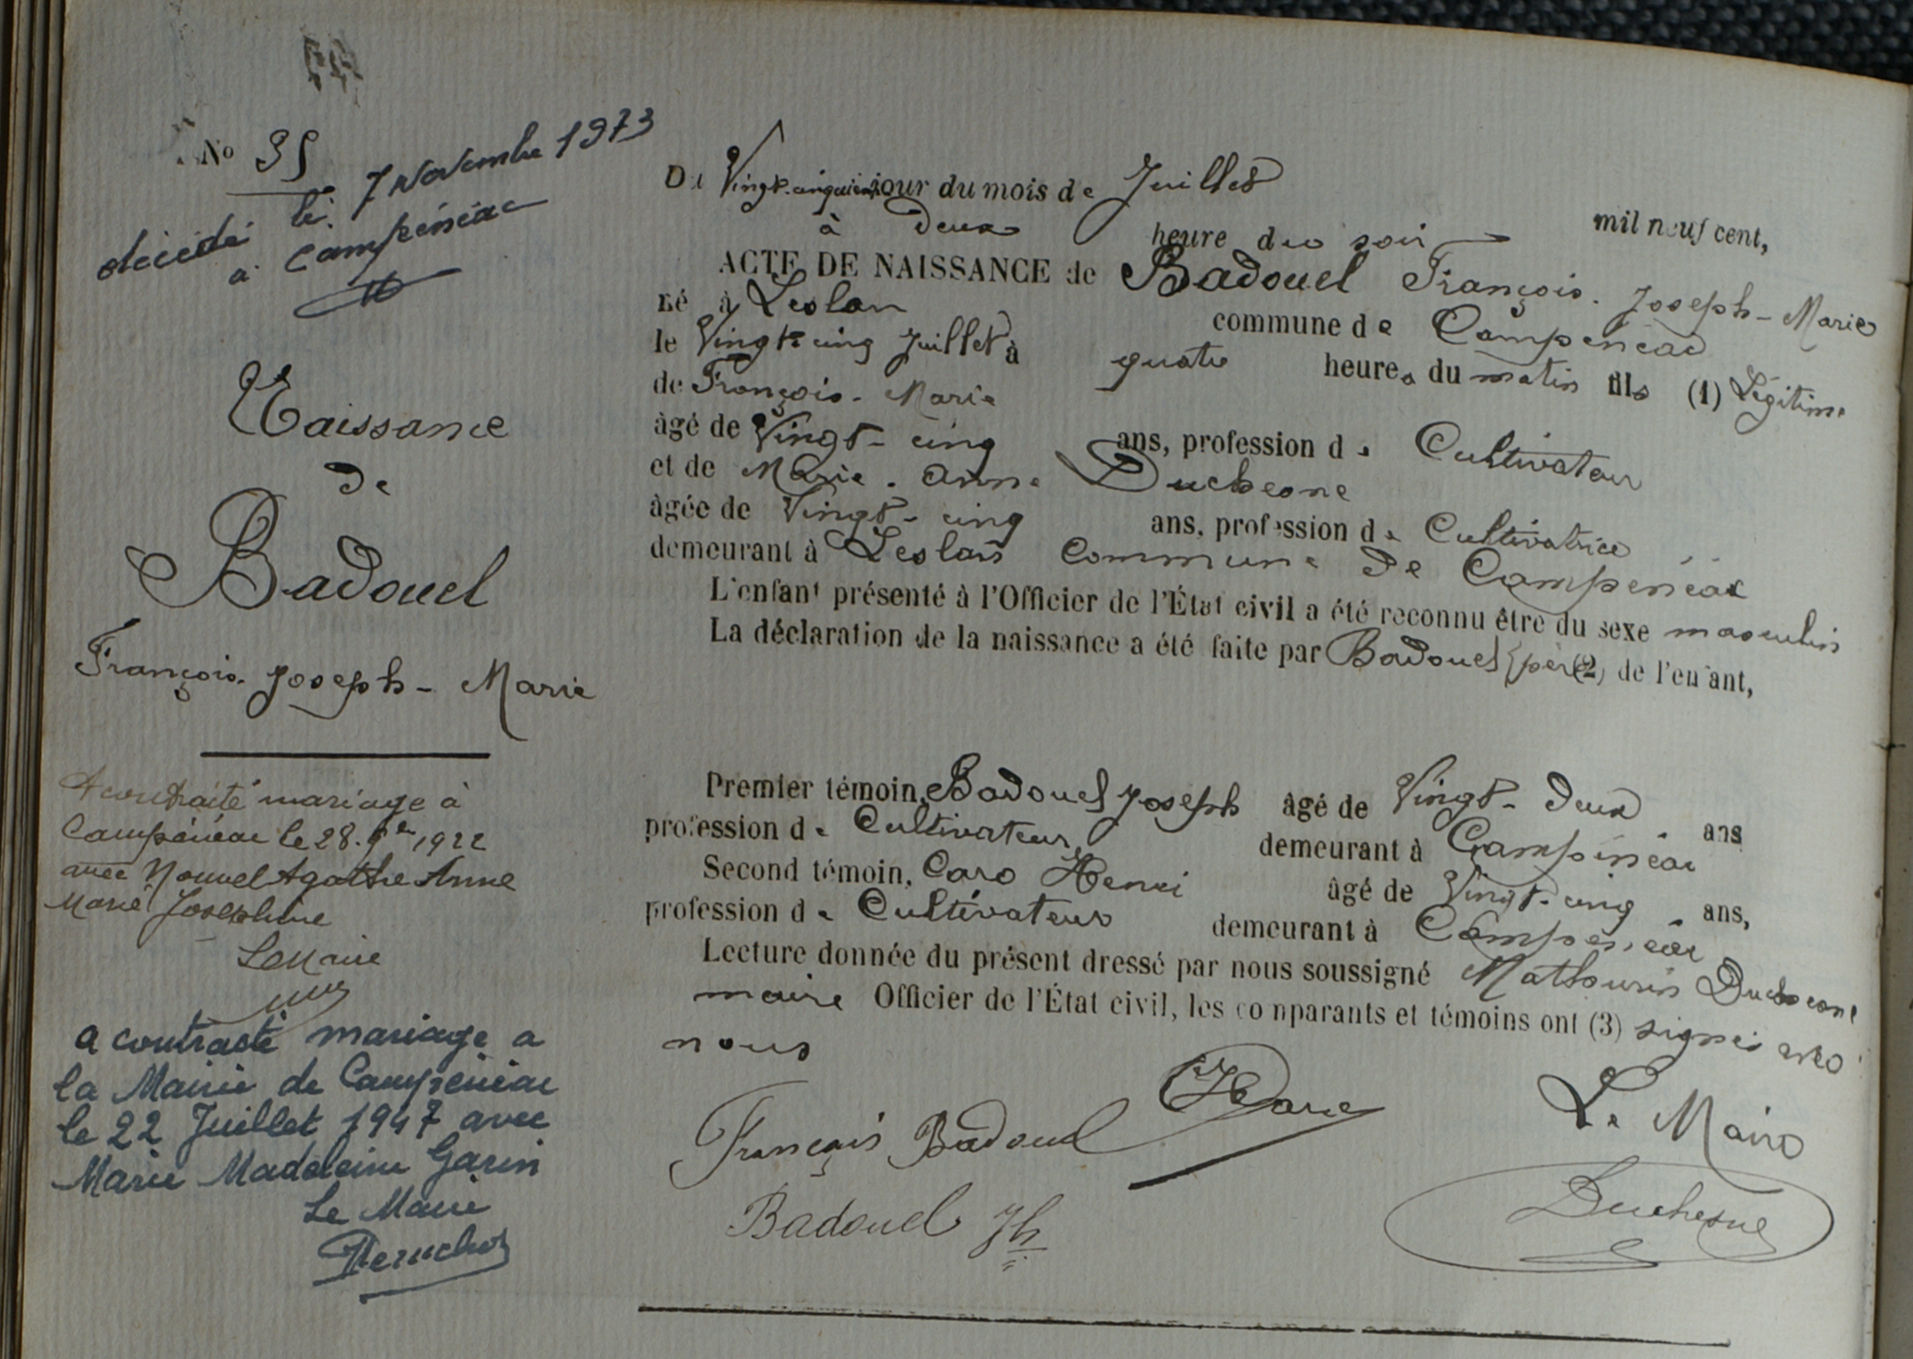 No 35
décédé le 7 Novembre 1973
à Campénéac
Naissance
de
Badouel
François Joseph - Marie
A contracté mariage à
Campénéac le 28. 9bre 1922
avec Nouvel Agathe Anne
Marie Josephine
Le Maire
a contracté mariage a
la Mairie de Campénéac
le 22 Juillet 1947 avec
Marie Madeleine Garin
Le Maire
Du Vingt-cinquième jour du mois de Juillet mil neuf cent,
à deux heure du soir
ACTE DE NAISSANCE de Badouel François. Joseph - Marie
né à Leslan commune de Campénéac
le Vingt-cinq Juillet à quatre heures du matin fils (1) Légitime
de François. Marie
âgé de Vingt-cinq ans, profession de Cultivateur
et de Marie. Anne Duchesne
âgée de Vingt-cinq ans, profession de Cultivatrice
demeurant à Leslan Commune de Campénéac
L'enfant présenté à l'Officier de l'État civil a été reconnu être du sexe masculin
La déclaration de la naissance a été faite par Badouel père (2) de l'enfant,
Premier témoin, Badouel Joseph âgé de Vingt-deux ans
profession de Cultivateur demeurant à Campénéac
Second témoin, Caro Henri âgé de Vingt-cinq ans,
profession de Cultivateur demeurant à Campénéac
Lecture donnée du présent dressé par nous soussigné Mathurin Duchesne
maire Officier de l'État civil, les comparants et témoins ont (3) signés avec
nous
François Badouel
HCaro
Le Maire
Badouel Jh
Duchesne